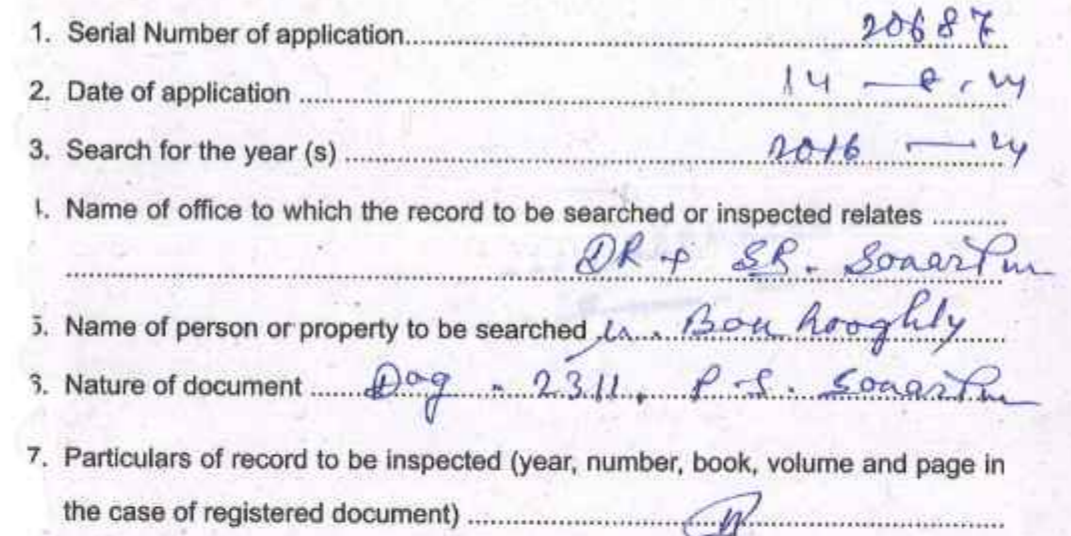 1. Serial Number of application.......................... 20687
2. Date of application .......................... 14 — 8 . 24
3. Search for the year (s) .......................... 2016 — 24
4. Name of office to which the record to be searched or inspected relates ..........
DR + SR. Sonarpur
5. Name of person or property to be searched Bon hooghly
6. Nature of document ...... Dag - 2311, P.S. Sonarpur
7. Particulars of record to be inspected (year, number, book, volume and page in
the case of registered document) ..........................